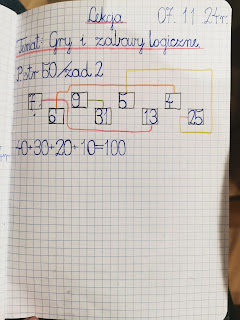 Lekcja 07.11.24r.
Temat: Gry i zabawy logiczne.
Pstr 50/zad 2
7 9 5 4
6 31 13 25
40+30+20+10=100